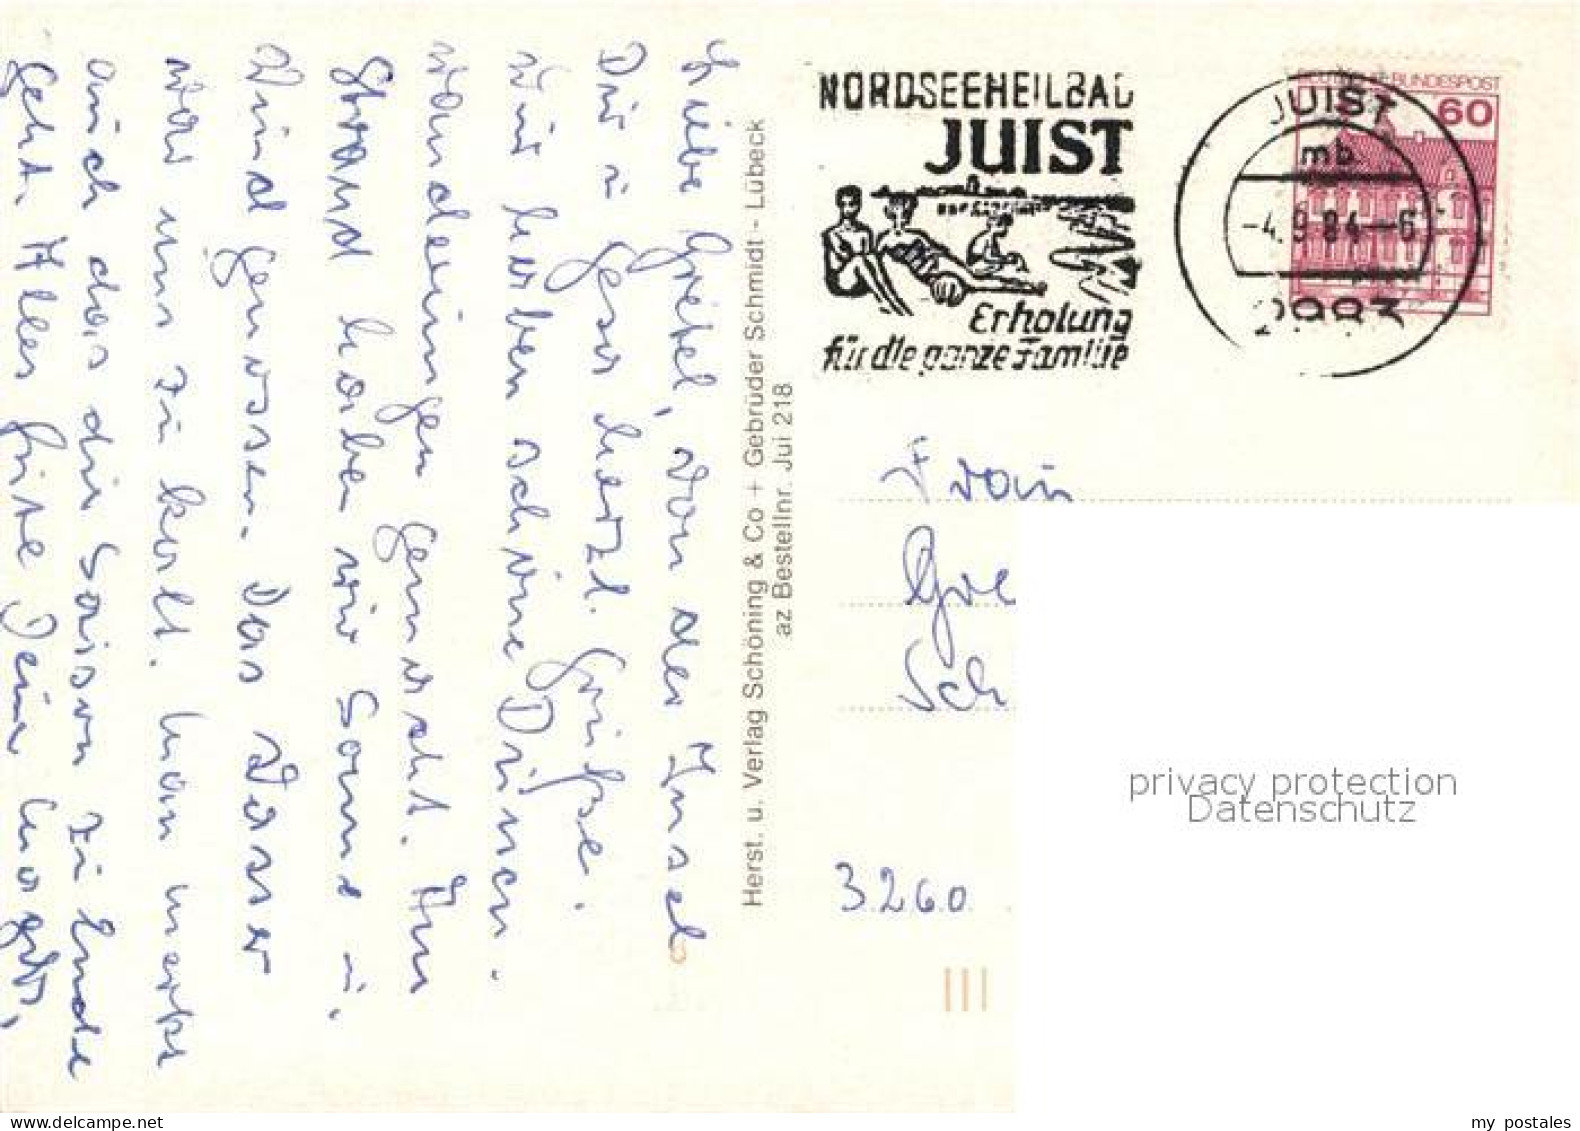 Liebe Gretel, von der Insel
Dir u. Gesa herzl. Grüße.
Wir haben schöne
Wanderungen gemacht. Am
Strand haben wir Sonne u.
Wind genossen. Das Wasser
war uns zu kalt. Man merkt
auch das die Saison zu Ende
geht. Alles Gute Deine
Herst. u. Verlag Schöning & Co + Gebrüder Schmidt - Lübeck
az Bestellnr. Jui 218
NORDSEEHEILBAD
JUIST
Erholung
für die ganze Familie
DEUTSCHE BUNDESPOST
60
JUIST
mb
-4.9.84-6
2983
Frau
Gre
Sch
3260
privacy protection
Datenschutz
my postales